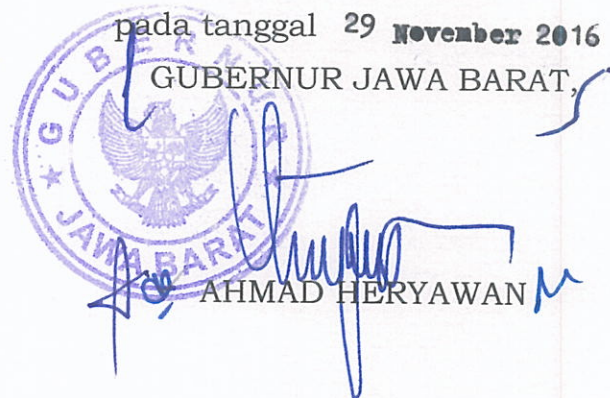 pada tanggal 29 November 2016
GUBERNUR JAWA BARAT,
GUBERNUR
JAWA BARAT
AHMAD HERYAWAN